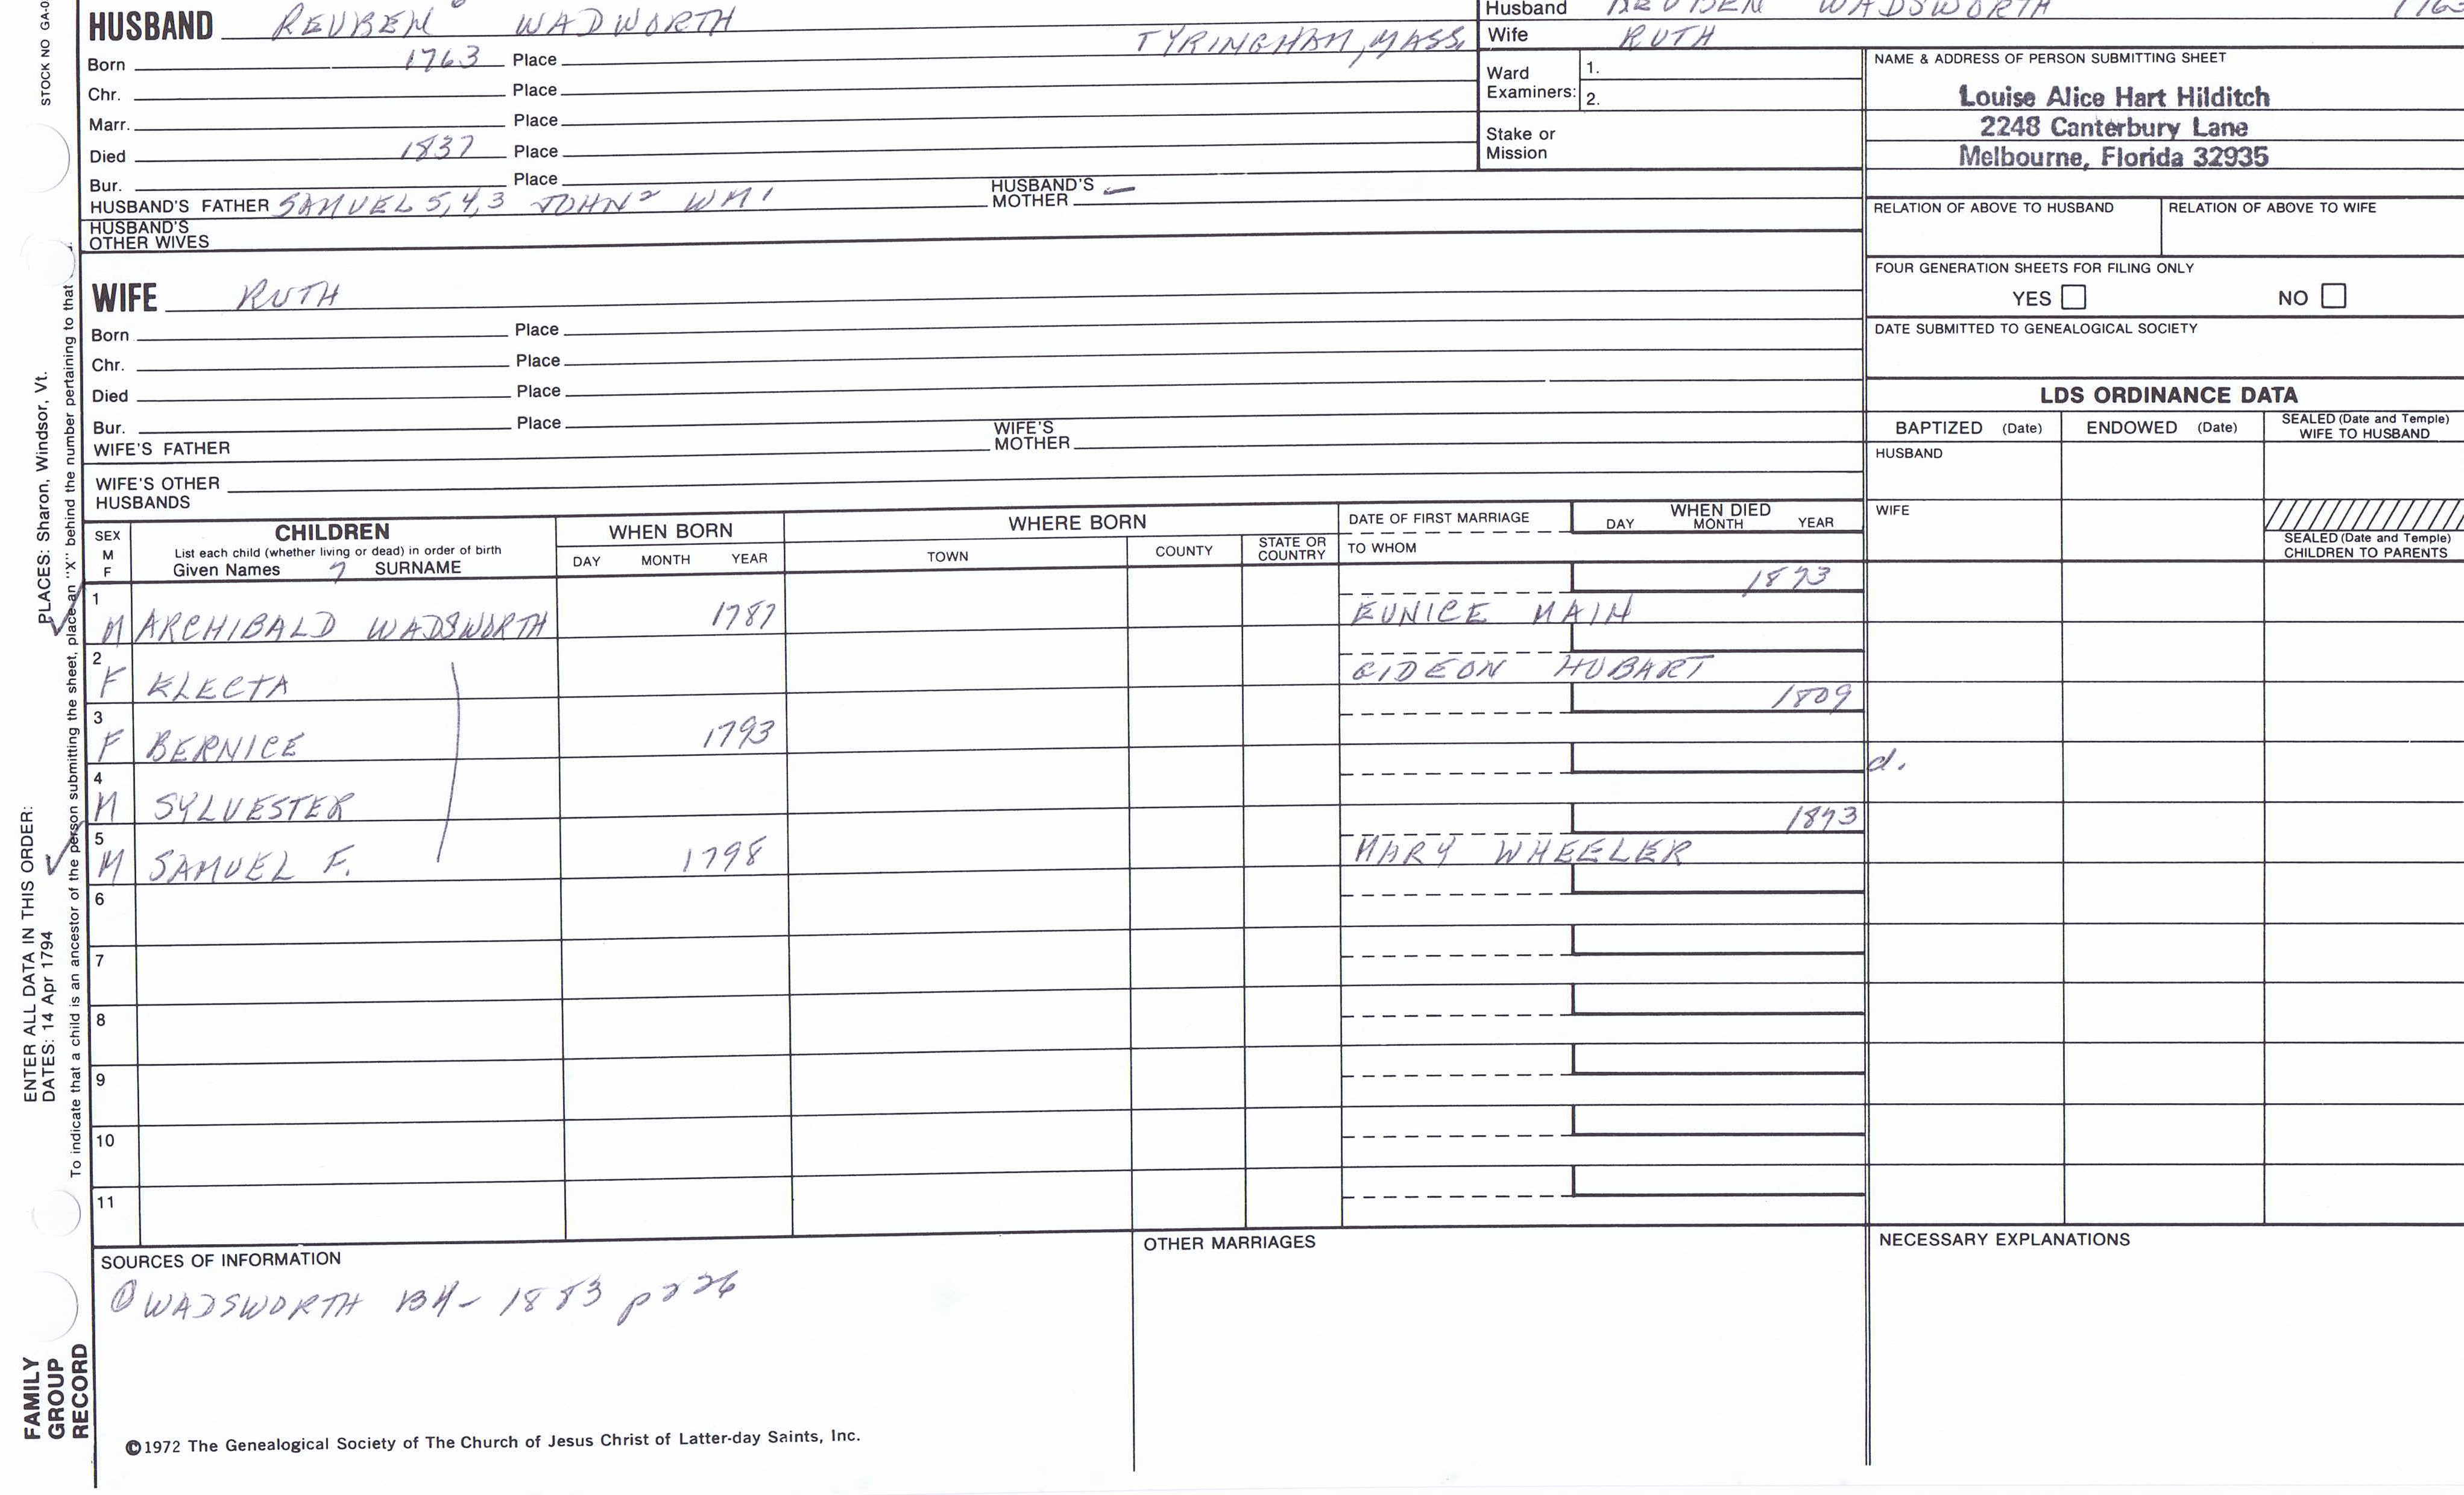 STOCK NO GA-0
HUSBAND REUBEN 6 WADWORTH
Husband REUBEN WADSWORTH 1763
Wife RUTH
Born 1763 Place TYRINGHAM, MASS.
Chr. Place
Marr. Place
Died 1837 Place
Bur. Place
HUSBAND'S FATHER SAMUEL 5,4,3 JOHN 2 WM 1 HUSBAND'S MOTHER —
HUSBAND'S OTHER WIVES
Ward Examiners: 1.
2.
Stake or Mission
NAME & ADDRESS OF PERSON SUBMITTING SHEET
Louise Alice Hart Hilditch
2248 Canterbury Lane
Melbourne, Florida 32935
RELATION OF ABOVE TO HUSBAND RELATION OF ABOVE TO WIFE
FOUR GENERATION SHEETS FOR FILING ONLY
YES NO
DATE SUBMITTED TO GENEALOGICAL SOCIETY
WIFE RUTH
Born Place
Chr. Place
Died Place
Bur. Place
WIFE'S FATHER WIFE'S MOTHER
WIFE'S OTHER HUSBANDS
LDS ORDINANCE DATA
BAPTIZED (Date) ENDOWED (Date) SEALED (Date and Temple) WIFE TO HUSBAND
HUSBAND
WIFE
SEALED (Date and Temple) CHILDREN TO PARENTS
SEX M F
CHILDREN
List each child (whether living or dead) in order of birth
Given Names 7 SURNAME
WHEN BORN
DAY MONTH YEAR
WHERE BORN
TOWN COUNTY STATE OR COUNTRY
DATE OF FIRST MARRIAGE
TO WHOM
WHEN DIED
DAY MONTH YEAR
1 1873
M ARCHIBALD WADSWORTH 1787 EUNICE MAIN
2
F ELECTA GIDEON HUBART
3 1809
F BERNICE 1793
4 d.
M SYLVESTER
5 1873
M SAMUEL F. 1798 MARY WHEELER
6
7
8
9
10
11
SOURCES OF INFORMATION
① WADSWORTH BH - 1883 p 226
OTHER MARRIAGES
NECESSARY EXPLANATIONS
©1972 The Genealogical Society of The Church of Jesus Christ of Latter-day Saints, Inc.
PLACES: Sharon, Windsor, Vt.
ENTER ALL DATA IN THIS ORDER:
DATES: 14 Apr 1794
To indicate that a child is an ancestor of the person submitting the sheet, place an "X" behind the number pertaining to that
FAMILY
GROUP
RECORD